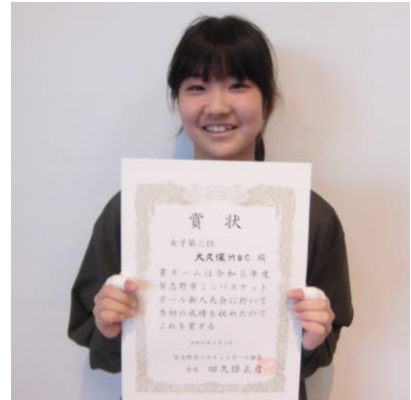 賞状
女子第三位
大久保MBC 殿
貴チームは令和5年度
習志野市ミニバスケット
ボール新人大会に於いて
当初の成績を収めたので
これを賞する
習志野市バスケットボール協会
会長 田久保正彦